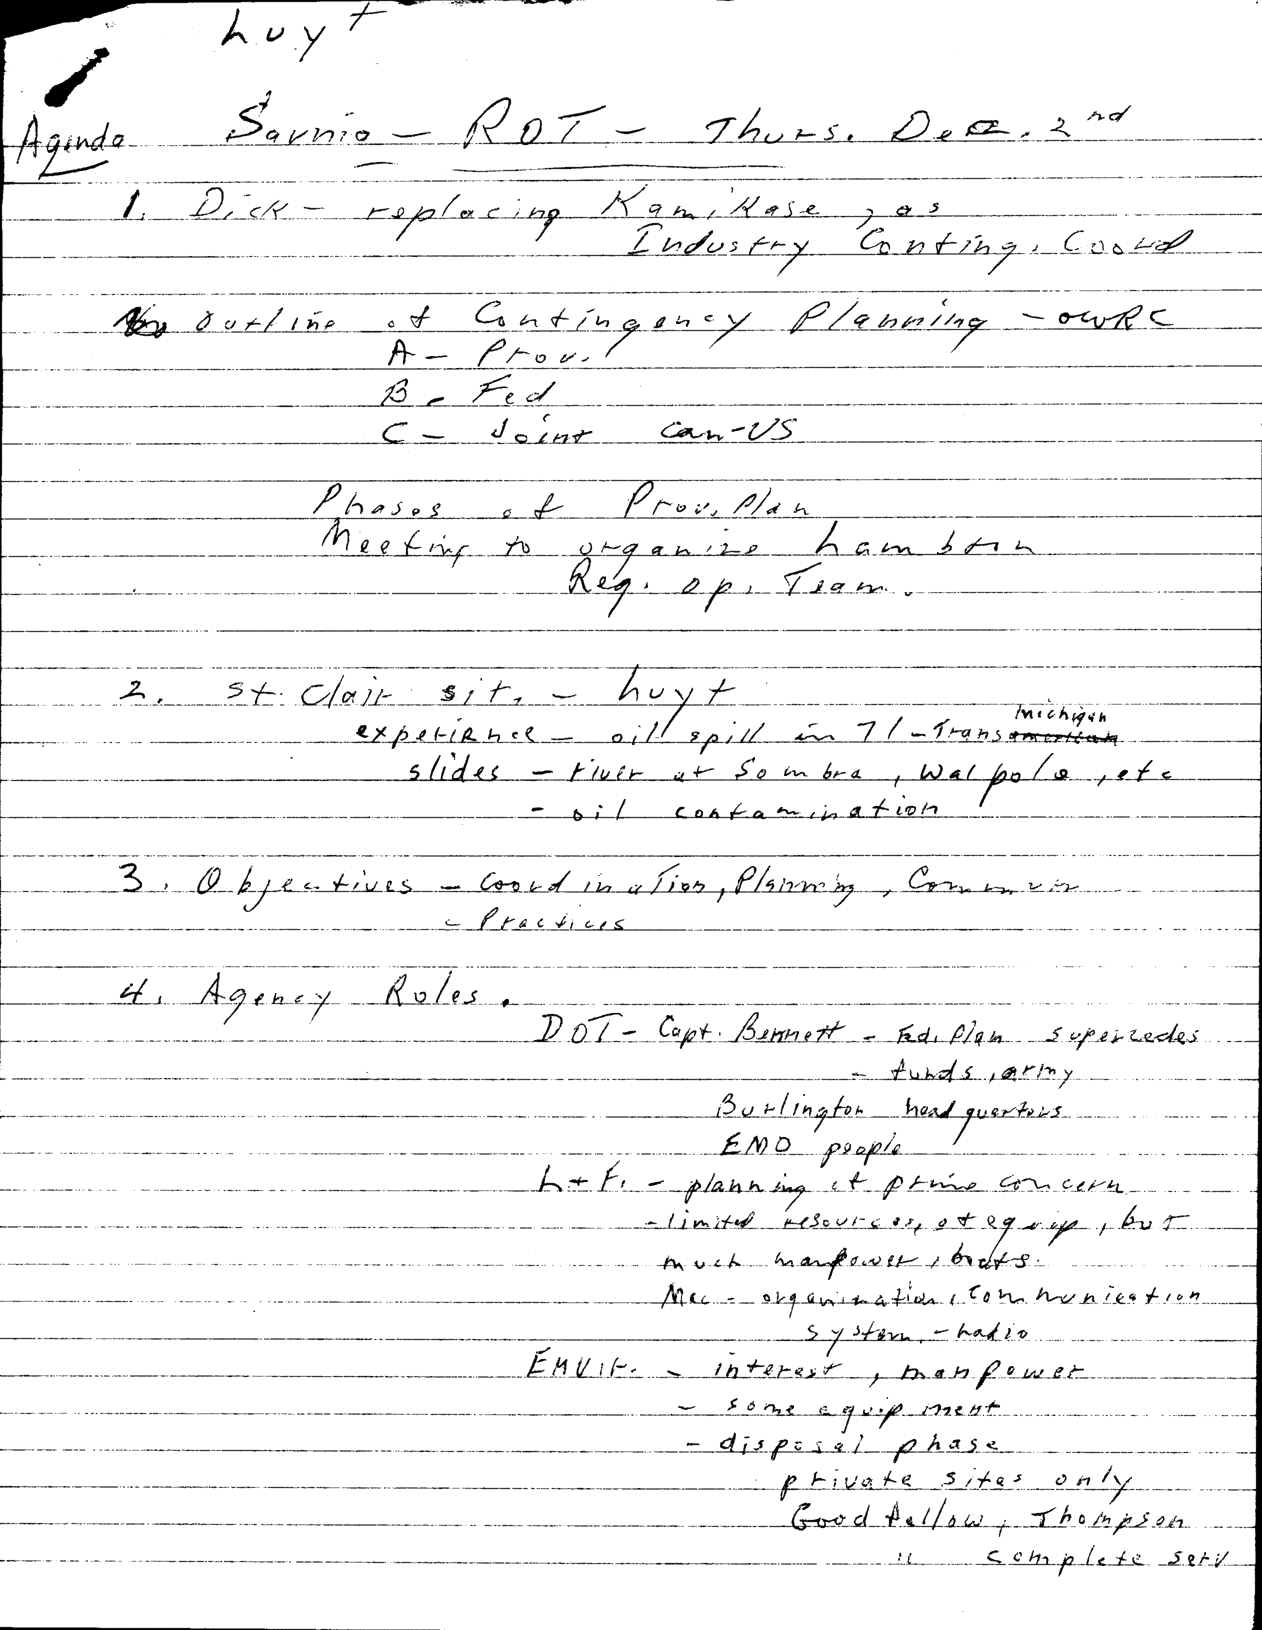 Luyt
Agenda Sarnia - ROT - Thurs. Dec. 2nd
1. Dick - replacing Kamikase, as
Industry Conting. Coord
Outline of Contingency Planning - OWRC
A - Prov.
B - Fed
C - Joint Can-US
Phases of Prov. Plan
Meeting to organize Lambton
Reg. Op. Team.
2. St. Clair sit. - Luyt
Michigan
experience - oil spill in 71 - Transamerican
slides - river at Sombra, Walpole, etc
- oil contamination
3. Objectives - Coordination, Planning, Common
- Practices
4. Agency Roles.
DOT - Capt. Bennett - Fed. Plan supercedes
- funds, army
Burlington headquarters
EMO people
L+F. - planning of prime concern
- limited resources, of equip, but
much manpower, boats.
Mac - organization, communication
system - radio
Envir. - interest, manpower
- some equipment
- disposal phase
private sites only
Goodfellow, Thompson
" complete serv